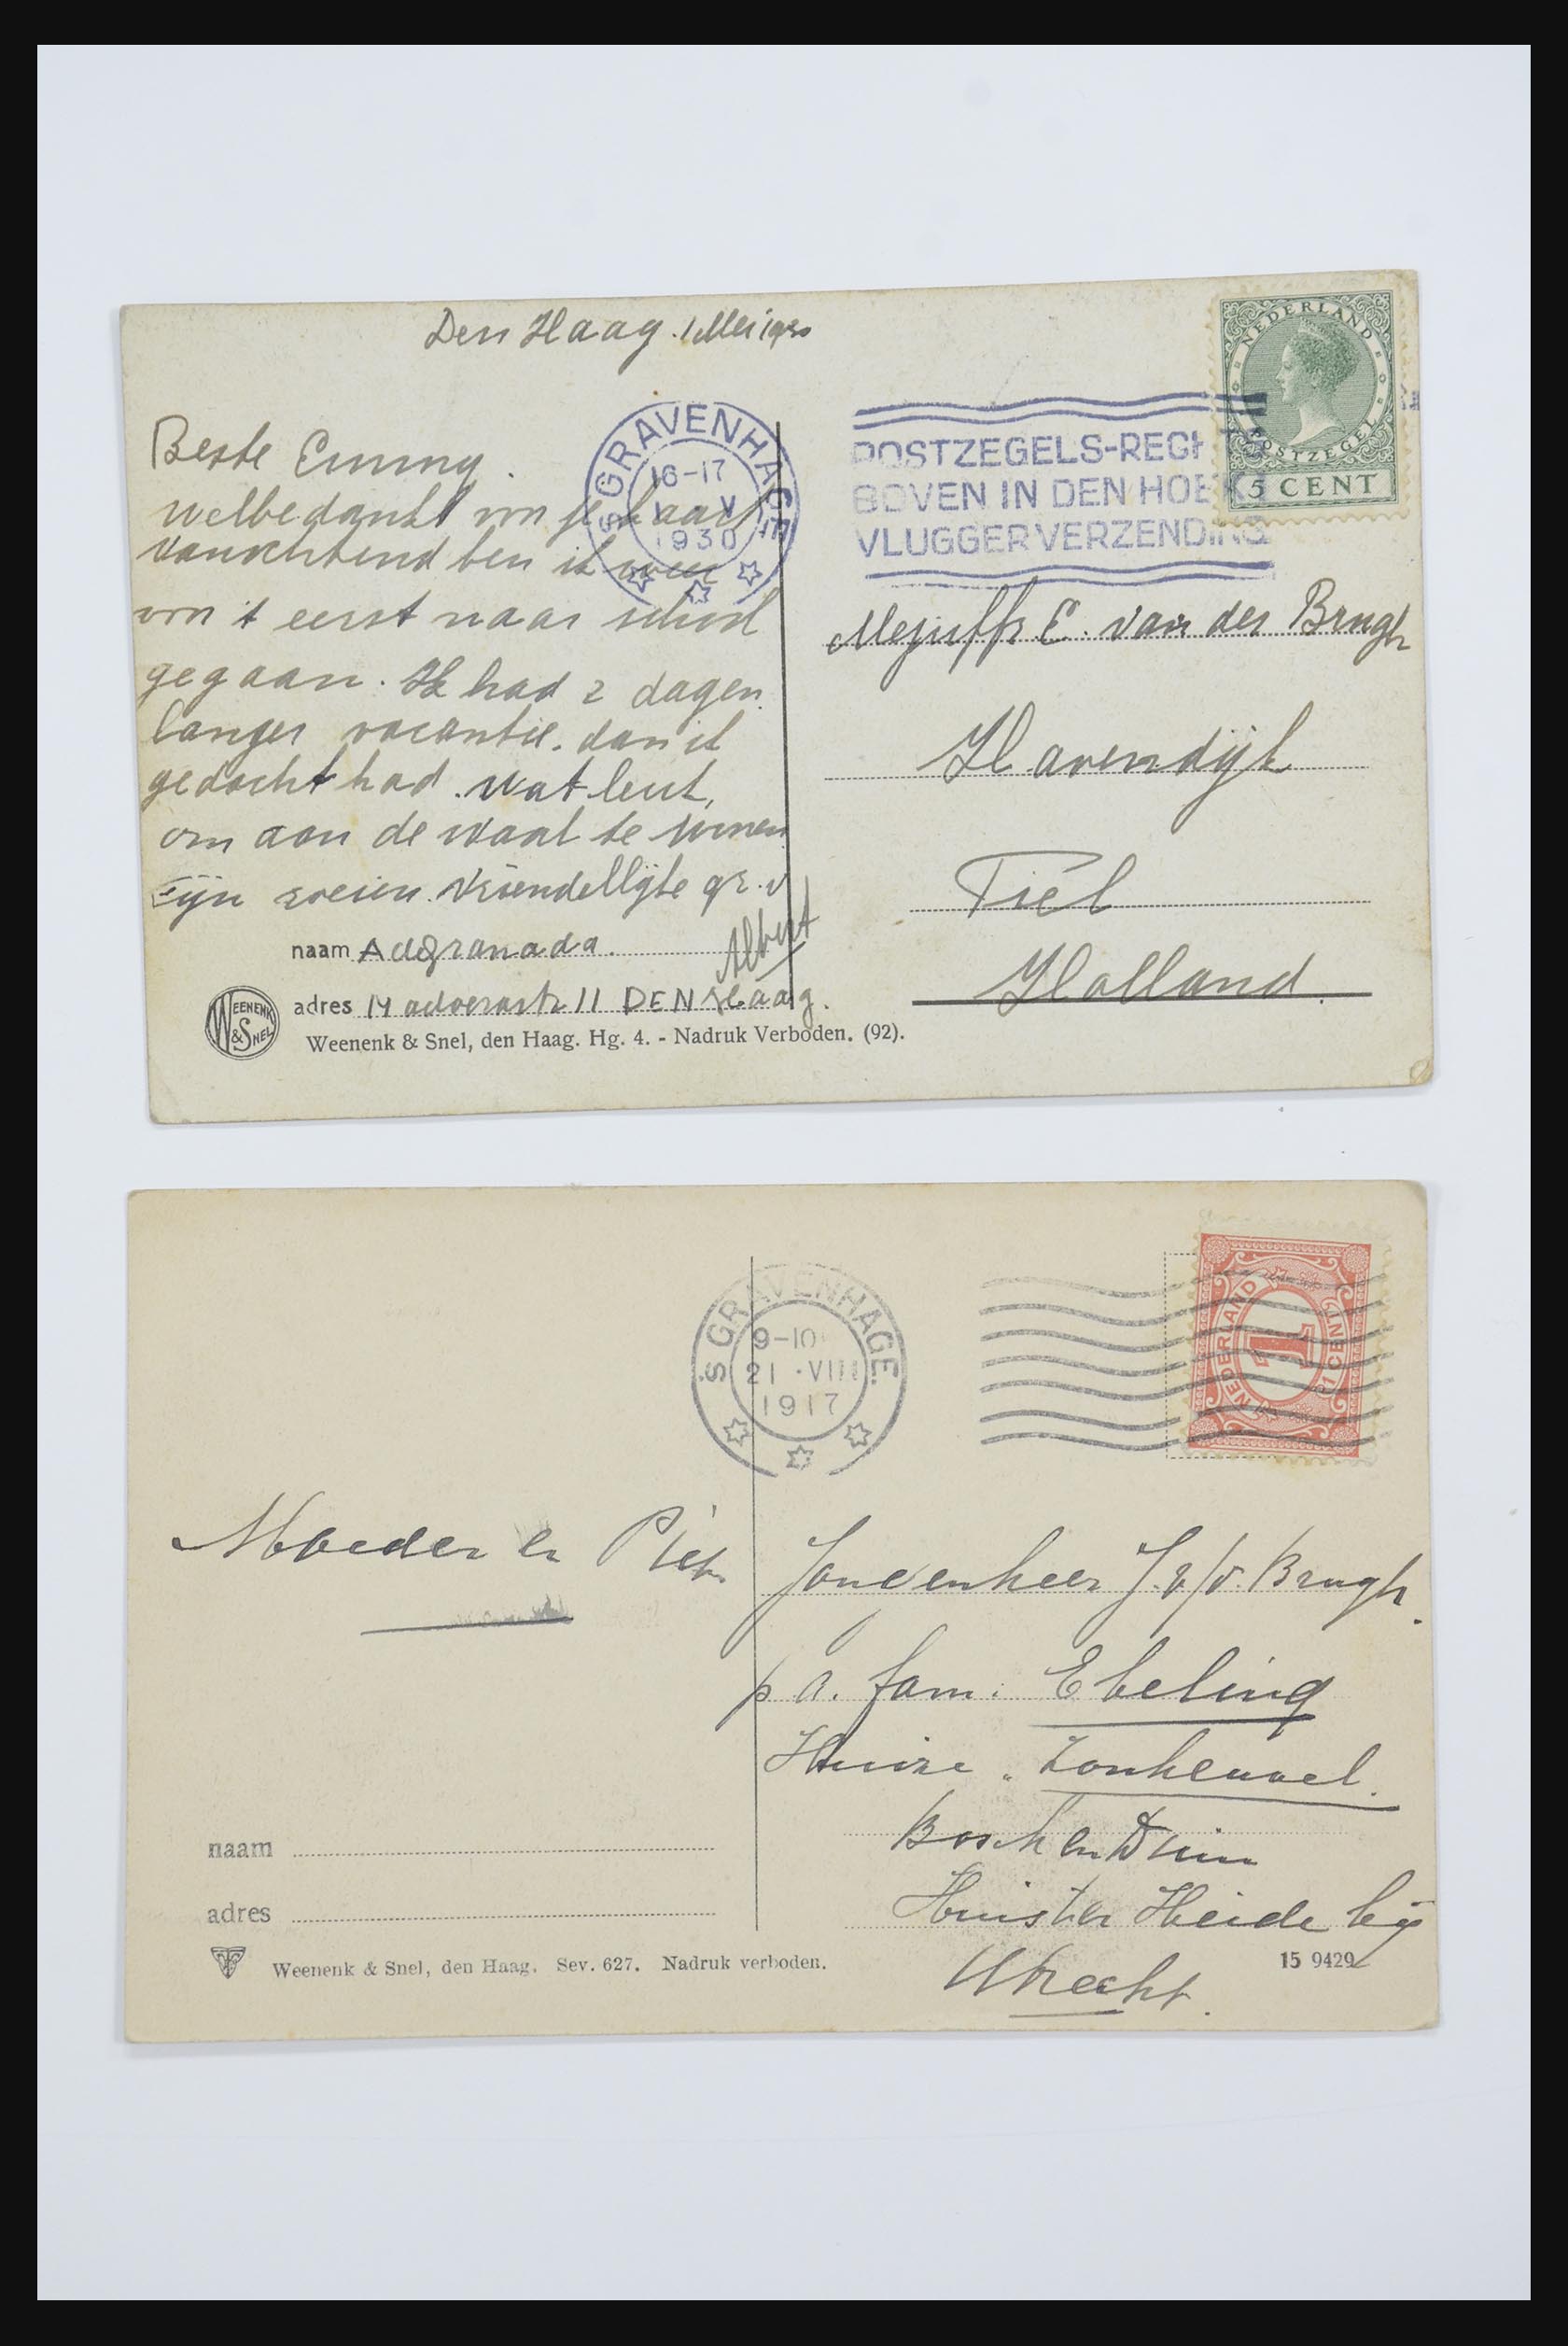 Den Haag. 1 Mei 1930
NEDERLAND
POSTZEGEL
5 CENT
'S GRAVENHAGE
16-17
1 V
1930
POSTZEGELS-RECHTS
BOVEN IN DEN HOEK
VLUGGER VERZENDING
Beste Emmy.
welbedankt vor je kaart
vanochtend ben ik weer
vor 't eerst naar school
gegaan. Ik had 2 dagen
langer vacantie. dan ik
gedacht had. Wat leuk,
om aan de Waal te wonen
Fijn roeien. Vriendelijke gr. v
Albert
naam AdGranada.
adres 11 DEN Haag.
WEENENK & SNEL
Weenenk & Snel, den Haag. Hg. 4. - Nadruk Verboden. (92).
Mejuffr E. van der Brugh
Havendijk
Tiel
Holland.
'S GRAVENHAGE.
9-10
21 ·VIII
1917
NEDERLAND
1
1 CENT
Moeder en Piet
Jongenheer J. v/d. Brugh.
p a. fam. Ebeling
Huize „Zonheuvel.
Bosch en Duin
Huister Heide bij
Utrecht.
naam
adres
Weenenk & Snel, den Haag. Sev. 627. Nadruk verboden.
15 9429